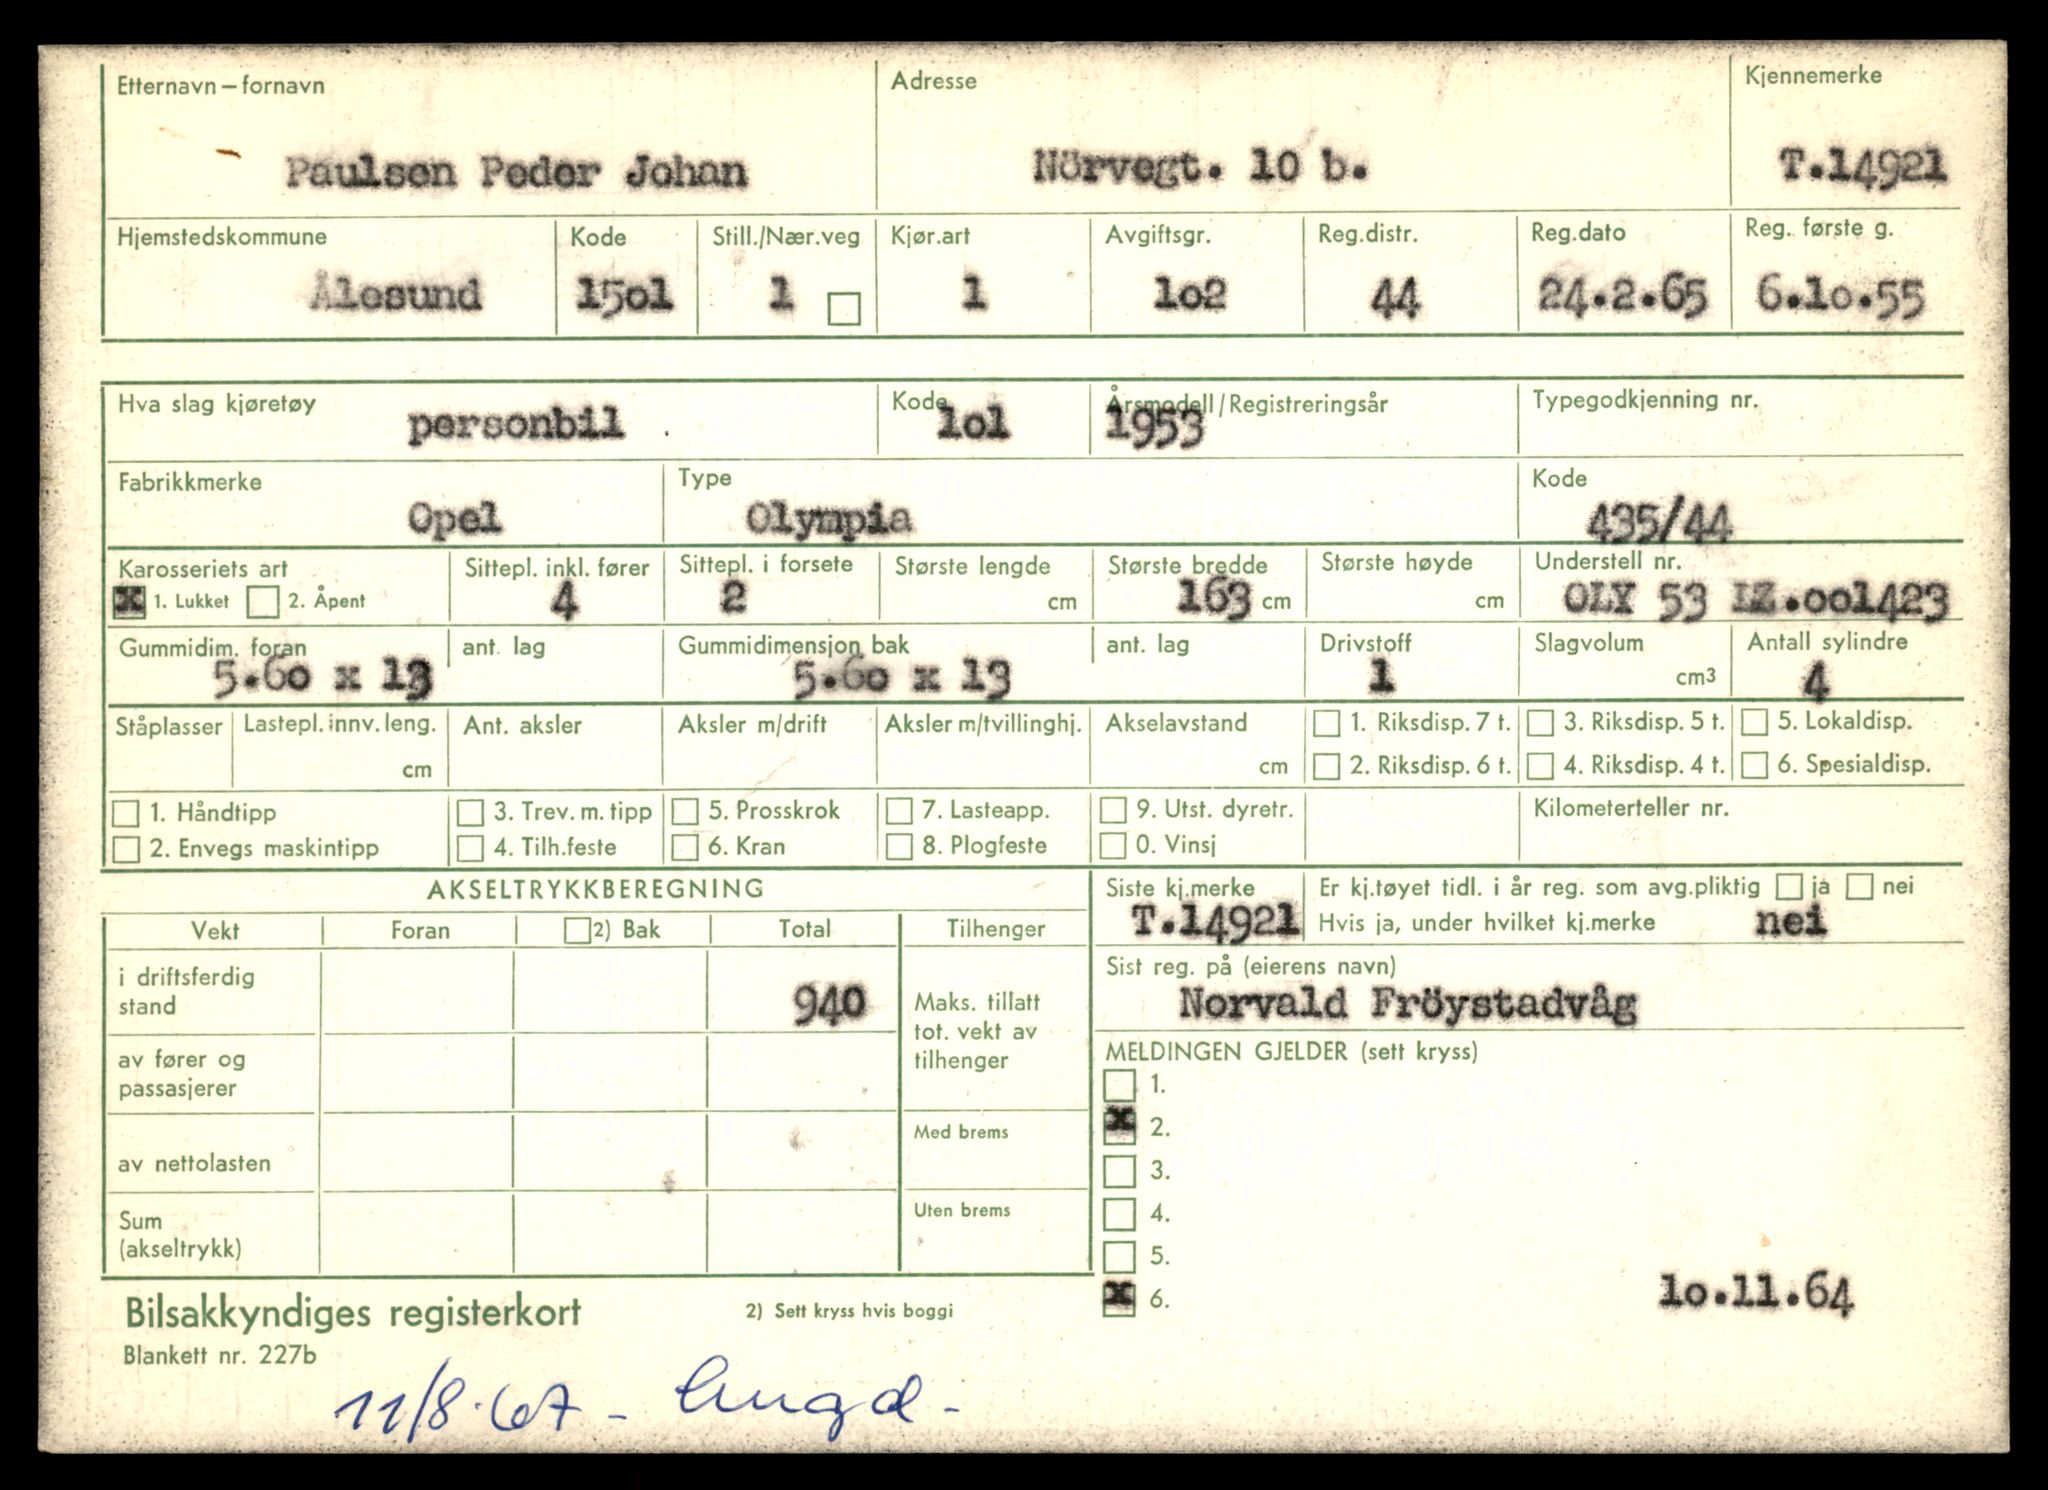 Etternavn – fornavn Adresse Kjennemerke
Paulsen Peder Johan Nörvegt. 10 b. T.14921
Hjemstedskommune Kode Still./Nær.veg Kjør.art Avgiftsgr. Reg.distr. Reg.dato Reg. første g.
Ålesund 1501 1 1 102 44 24.2.65 6.10.55
Hva slag kjøretøy Kode Årsmodell/Registreringsår Typegodkjenning nr.
personbil 101 1953
Fabrikkmerke Type Kode
Opel Olympia 435/44
Karosseriets art Sittepl. inkl. fører Sittepl. i forsete Største lengde Største bredde Største høyde Understell nr.
x 1. Lukket 2. Åpent 4 2 cm 163 cm cm OLY 53 LZ.001423
Gummidim. foran ant. lag Gummidimensjon bak ant. lag Drivstoff Slagvolum Antall sylindre
5.60 x 13 5.60 x 13 1 cm3 4
Ståplasser Lastepl. innv. leng. Ant. aksler Aksler m/drift Aksler m/tvillinghj. Akselavstand 1. Riksdisp. 7 t. 3. Riksdisp. 5 t. 5. Lokaldisp.
cm cm 2. Riksdisp. 6 t. 4. Riksdisp. 4 t. 6. Spesialdisp.
1. Håndtipp 3. Trev. m. tipp 5. Prosskrok 7. Lasteapp. 9. Utst. dyretr. Kilometerteller nr.
2. Envegs maskintipp 4. Tilh.feste 6. Kran 8. Plogfeste 0. Vinsj
AKSELTRYKKBEREGNING Siste kj.merke Er kj.tøyet tidl. i år reg. som avg.pliktig ja nei
Vekt Foran 2) Bak Total Tilhenger T.14921 Hvis ja, under hvilket kj.merke nei
i driftsferdig Sist reg. på (eierens navn)
stand 940 Maks. tillatt Norvald Fröystadvåg
tot. vekt av
av fører og tilhenger MELDINGEN GJELDER (sett kryss)
passasjerer 1.
Med brems x 2.
av nettolasten 3.
Sum Uten brems 4.
(akseltrykk) 5.
x 6. 10.11.64
Bilsakkyndiges registerkort 2) Sett kryss hvis boggi
Blankett nr. 227b
11/8.67 -